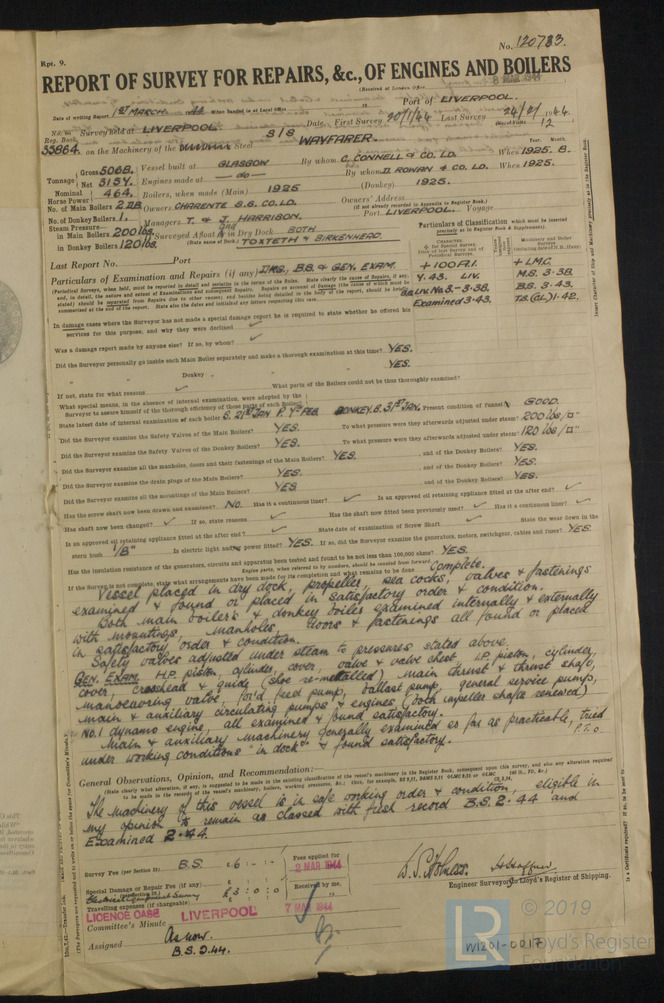 Rpt. 9.
No. 120783.
REPORT OF SURVEY FOR REPAIRS, &c., OF ENGINES AND BOILERS
(Received at London Office
8 MAR 1944
Date of writing Report 1ST MARCH 1944 When handed in at Local Office 19 Port of LIVERPOOL.
No. in Survey held at LIVERPOOL Date, First Survey 20/1/44 Last Survey 24/2/1944
Reg. Book. (No. of Visits 12
33864 on the Machinery of the Steel S/S WAYFARER.
Tonnage Gross 5068. Vessel built at GLASGOW By whom C. CONNELL & CO. LD. When 1925. 8.
Net 3154. Engines made at — do — By whom D. ROWAN & CO. LD. When 1925.
Nominal Horse Power 464. Boilers, when made (Main) 1925 (Donkey) 1925.
No. of Main Boilers 2 DB Owners CHARENTE S.S. CO. LD. Owners' Address
(if not already recorded in Appendix to Register Book.)
No. of Donkey Boilers 1. Managers T. & J. HARRISON. Port LIVERPOOL. Voyage
Steam Pressure—
in Main Boilers 200 lbs. Surveyed Afloat and in Dry Dock BOTH
in Donkey Boilers 120 lbs. (State name of Dock.) TOXTETH & BIRKENHEAD.
Particulars of Classification (which must be inserted
precisely as in Register Book & Supplement).
+ 100 A.1. + L.M.C.
Y. 43. LIV. M.S. 3.38.
S.S. Liv. No.3. - 3.38. B.S. 3.43.
Examined 3.43. T.S. (CL) 1.42.
Last Report No. Port
Particulars of Examination and Repairs (if any) DKG, B.S. & GEN. EXAM.
In damage cases where the Surveyor has not made a special damage report he is required to state whether he offered his
services for this purpose, and why they were declined ✓
Was a damage report made by anyone else? If so, by whom? ✓
Did the Surveyor personally go inside each Main Boiler separately and make a thorough examination at this time? YES.
" " Donkey " " " YES.
If not, state for what reasons ✓ What parts of the Boilers could not be thus thoroughly examined?
What special means, in the absence of internal examination, were adopted by the
Surveyor to assure himself of the thorough efficiency of those parts of each Boiler?
State latest date of internal examination of each boiler S. 21ST JAN P. 4TH FEB. DONKEY.B. 31ST JAN. Present condition of funnel GOOD.
Did the Surveyor examine the Safety Valves of the Main Boilers? YES. To what pressure were they afterwards adjusted under steam? 200 lbs/□"
Did the Surveyor examine the Safety Valves of the Donkey Boilers? YES. To what pressure were they afterwards adjusted under steam? 120 lbs/□"
Did the Surveyor examine all the manholes, doors and their fastenings of the Main Boilers? YES. , and of the Donkey Boilers? YES.
Did the Surveyor examine the drain plugs of the Main Boilers? YES. , and of the Donkey Boilers? YES.
Did the Surveyor examine all the mountings of the Main Boilers? YES , and of the Donkey Boilers? YES.
Has the screw shaft now been drawn and examined? NO. Has it a continuous liner? ✓ Is an approved oil retaining appliance fitted at the after end? ✓
Has shaft now been changed? ✓ If so, state reasons ✓ Has the shaft now fitted been previously used? ✓ Has it a continuous liner? ✓
Is an approved oil retaining appliance fitted at the after end? ✓ State date of examination of Screw Shaft ✓ State the wear down in the
stern bush 1/8" Is electric light and power fitted? YES. If so, did the Surveyor examine the generators, motors, switchgear, cables and fuses? YES.
Has the insulation resistance of the generators, circuits and apparatus been tested and found to be not less than 100,000 ohms? YES.
Engine parts, when referred to by numbers, should be counted from forward.
If the Survey is not complete, state what arrangements have been made for its completion and what remains to be done Complete.
Vessel placed in dry dock, propeller, sea cocks, valves & fastenings
examined & found or placed in satisfactory order & condition.
Both main boilers & donkey boiler examined internally & externally
with mountings, manholes, doors & fastenings all found or placed
in satisfactory order & condition.
Safety valves adjusted under steam to pressures stated above.
GEN. EXAM. H.P. piston, cylinder, cover, valve & valve chest. I.P. piston, cylinder,
cover, crosshead & guide (shoe re-metalled) main thrust & thrust shaft,
manoeuvring valve, for'd feed pump, ballast pump, general service pumps,
main & auxiliary circulating pumps & engines (both impeller shafts renewed)
No. 1 dynamo engine, all examined & found satisfactory.
Main & auxiliary machinery generally examined as far as practicable, tried
under working conditions "in dock" & found satisfactory. P.T.O
General Observations, Opinion, and Recommendation:—
The machinery of this vessel is in safe working order & condition, eligible in
my opinion to remain as classed with fresh record B.S. 2.44 and
Examined 2.44.
Survey Fee (per Section 21) B.S. £6 : - : - Fees applied for
2 MAR 1944
Special Damage or Repair Fee (if any) £3 : 0 : 0 Received by me,
Travelling expenses (if chargeable)
Engineer Surveyor to Lloyd's Register of Shipping.
LICENCE OASB LIVERPOOL 7 MAR 1944
Committee's Minute
Assigned As now.
B.S. 2.44.
© 2019
LR
Lloyd's Register
Foundation
W1201-0017